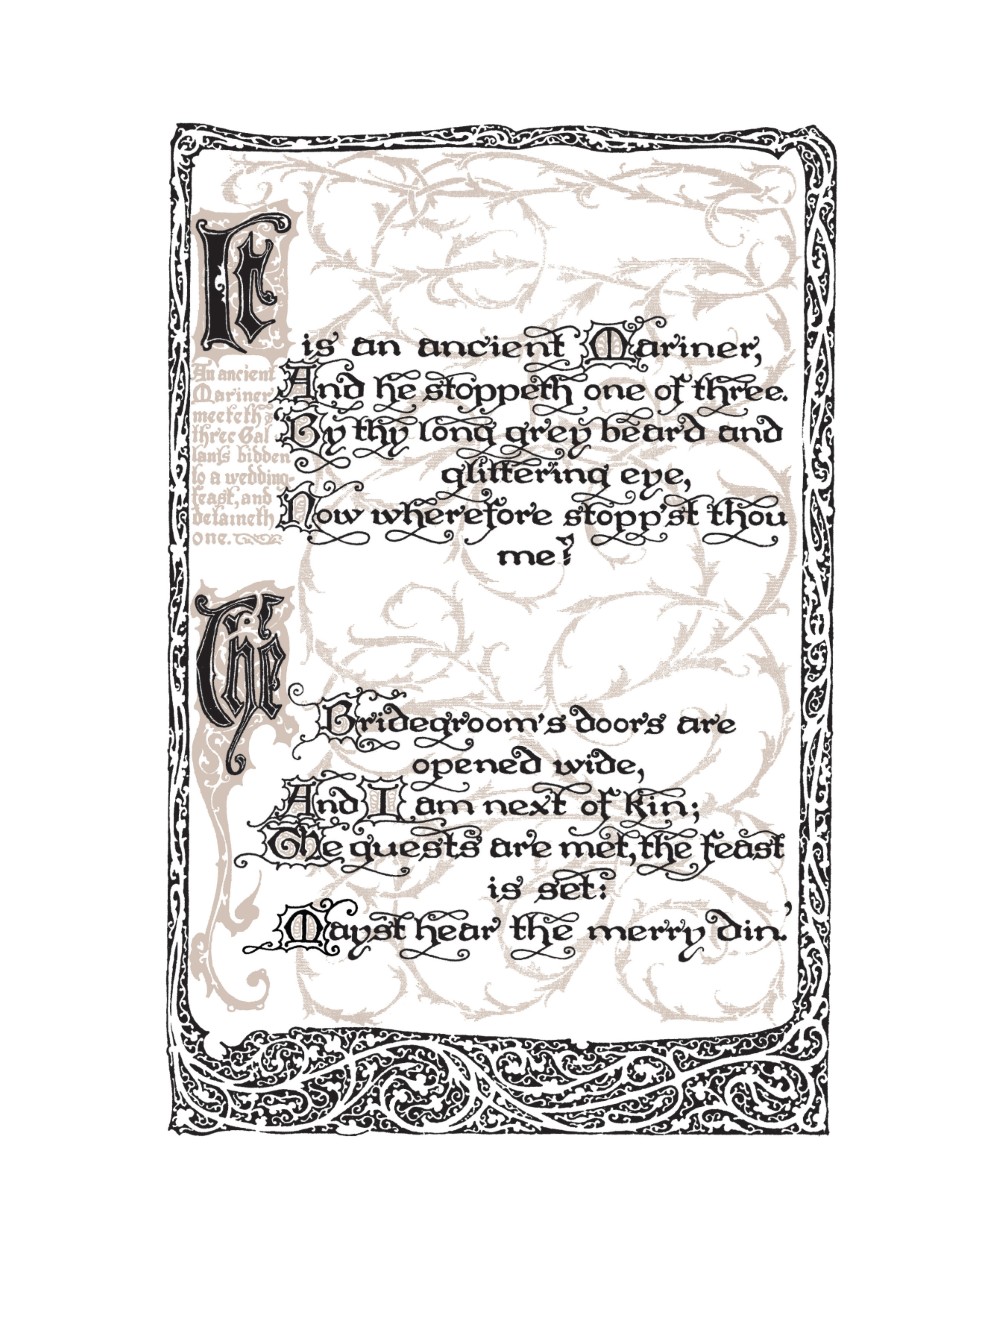 It
is an ancient Mariner,
And he stoppeth one of three.
By thy long grey beard and
glittering eye,
Now wherefore stopp'st thou
me?
An ancient
Mariner
meeteth
three Gal
lants bidden
to a wedding-
feast, and
detaineth
one.
The
Bridegroom's doors are
opened wide,
And I am next of kin;
The guests are met, the feast
is set:
Mayst hear the merry din.'